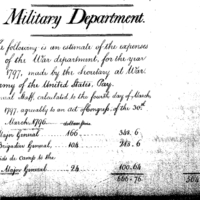 Military Department.
The following is an estimate of the expenses
of the War department, for the year
1797, made by the Secretary at War.
Army of the United States, Pay.
General Staff, calculated to the fourth day of March
1797, agreeably to an act of Congress, of the 30th
March, 1796.
Major General 166 340.6
Brigadier General 104
Aide de Camp to the
Major General 24 100.64
666.76